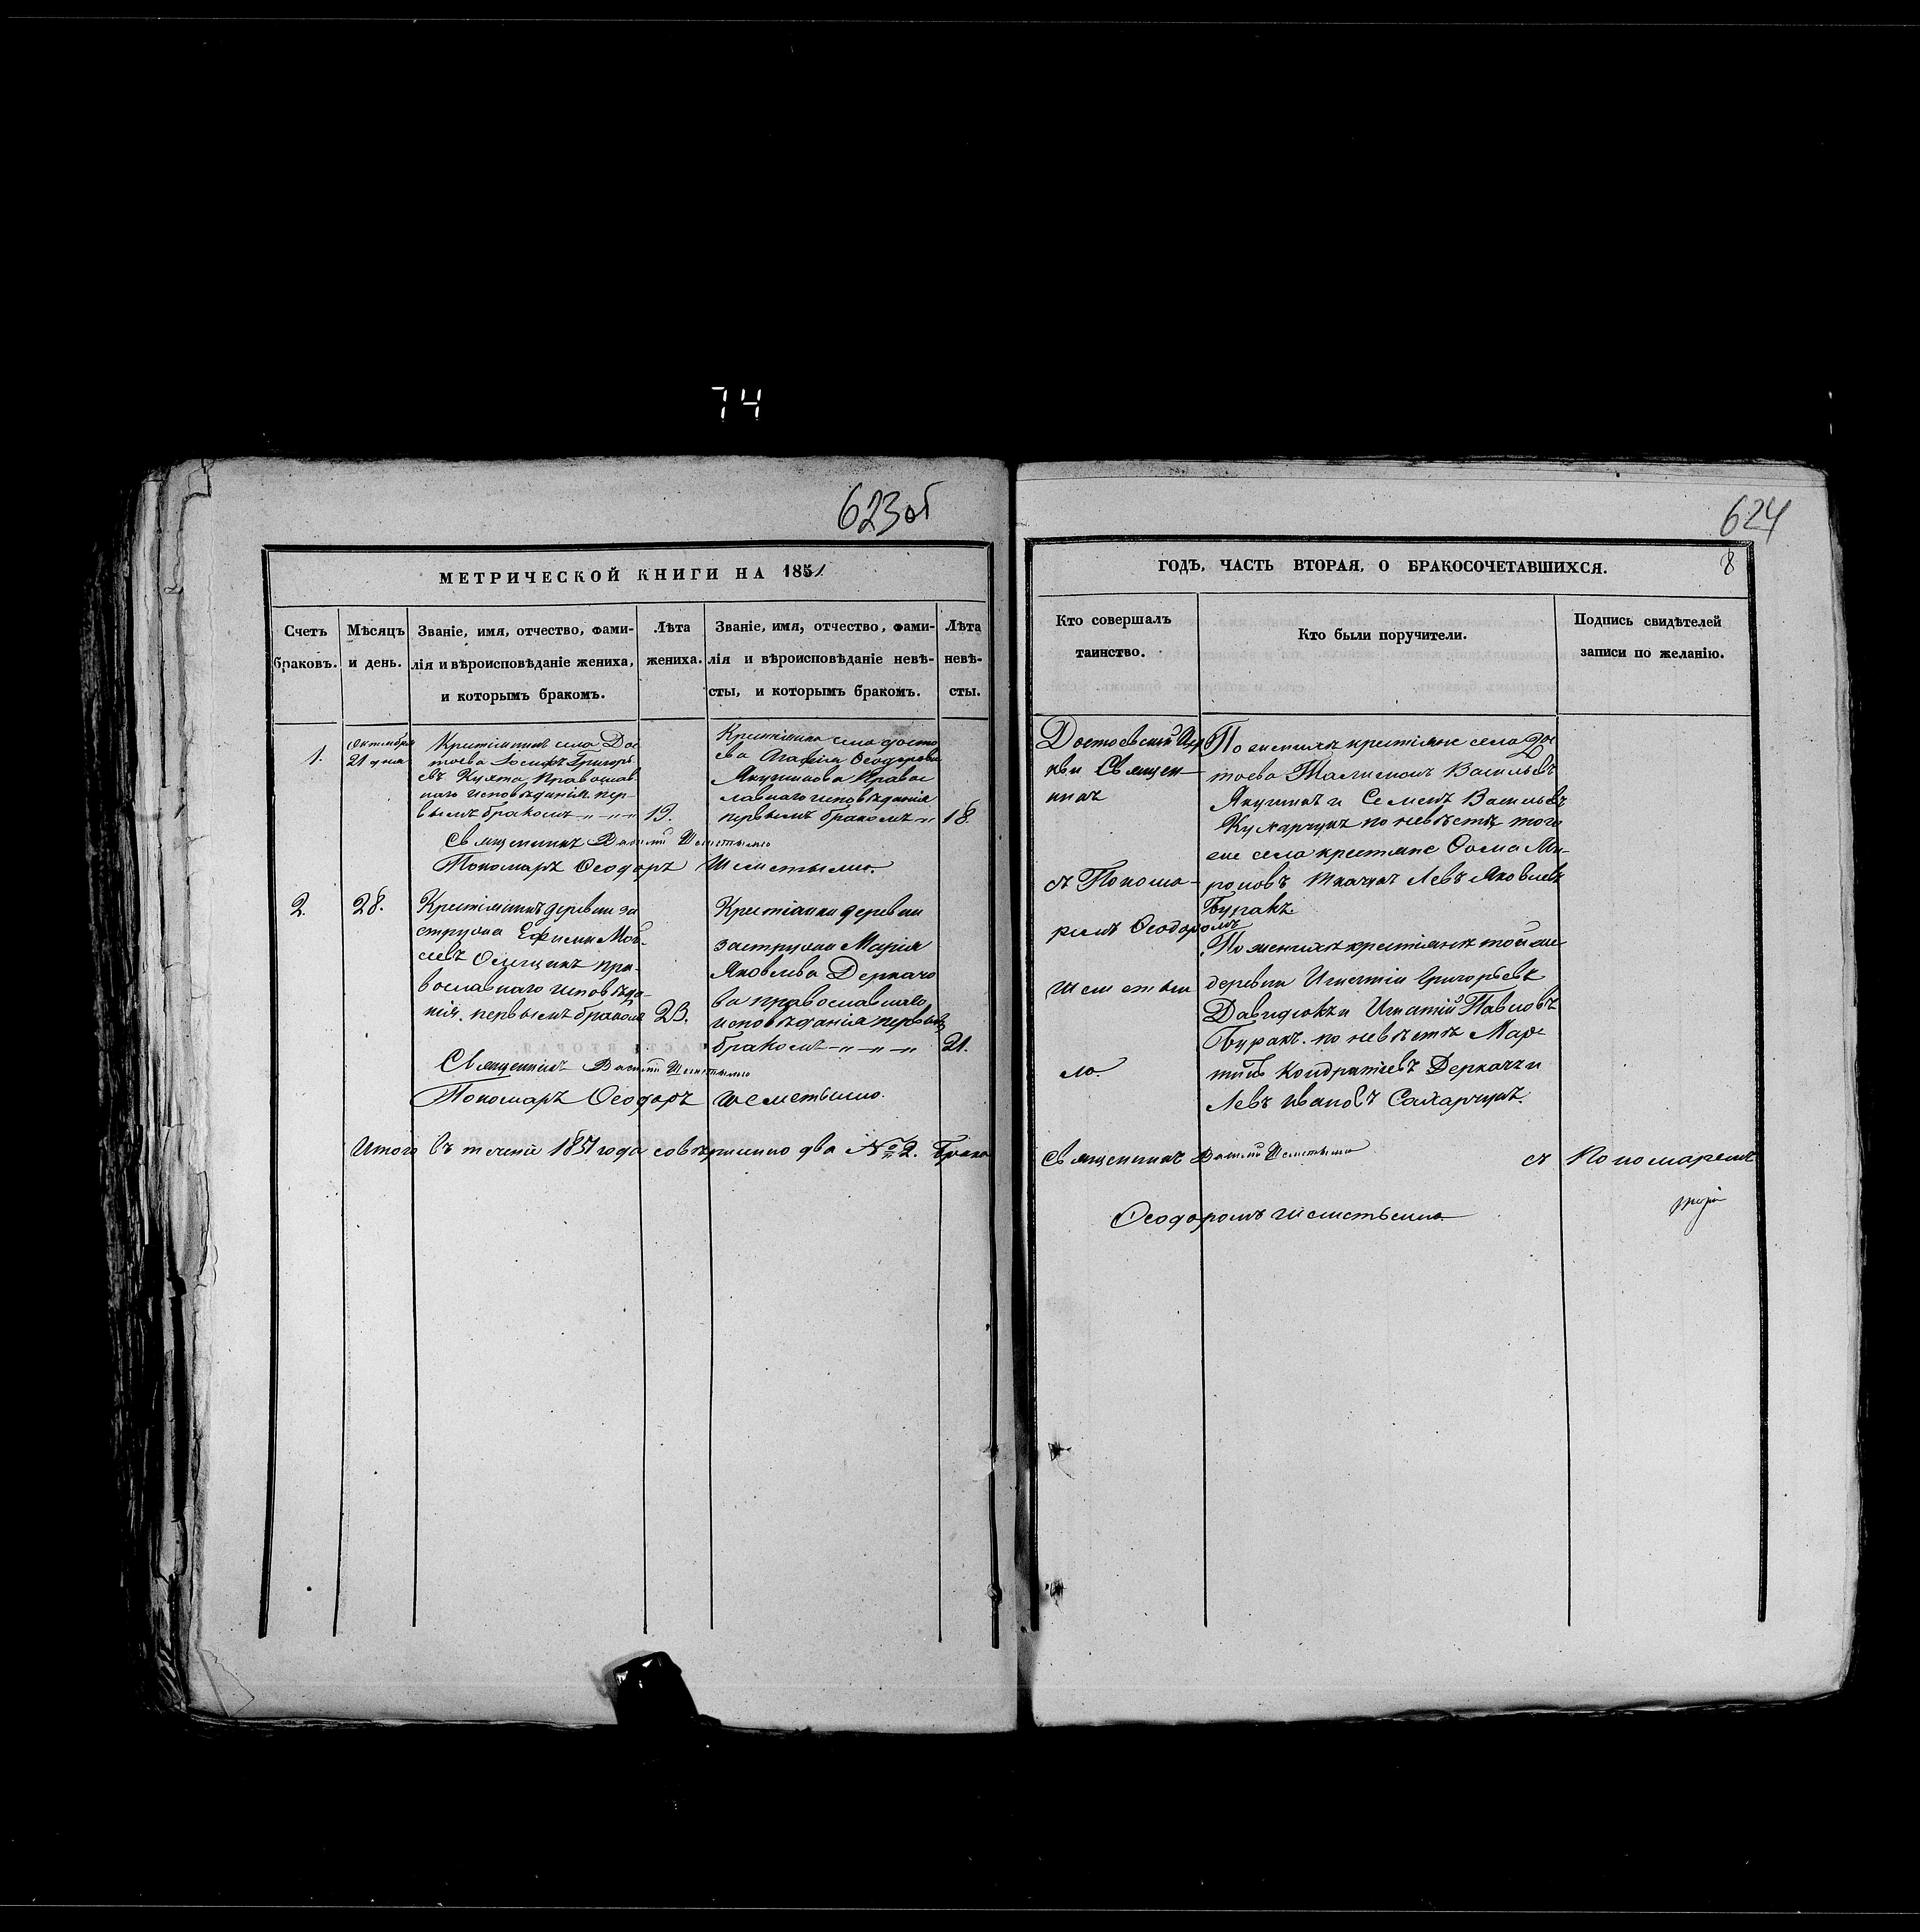 74
623об
МЕТРИЧЕСКОЙ КНИГИ НА 1851
Счетъ браковъ.
Мѣсяцъ и день.
Званіе, имя, отчество, фами-
лія и вѣроисповѣданіе жениха,
и которымъ бракомъ.
Лѣта
жениха.
Званіе, имя, отчество, фами-
лія и вѣроисповѣданіе невѣ-
сты, и которымъ бракомъ.
Лѣта
невѣ-
сты.
1.
Октября
21 дня
Крестьянинъ села Дос
тоева Іосифъ Григорь
евъ Кухта Православ
наго исповѣданія пер-
вымъ бракомъ
19.
Крестьянка села Досто
ева Агафія Ѳеодорова
Якушикова Правос
лавнаго исповѣданія
первымъ бракомъ
18
Священникъ Василій
Пономарь Ѳеодоръ
2.
28.
Крестьянинъ деревни за
струпа Ефимъ
православнаго исповѣда-
нія. первымъ бракомъ
23.
Крестьянка деревни
заструпы Марія
Яковлева Деркачо
ва православнаго
исповѣданія первымъ
бракомъ
21.
Священникъ Василій
Пономарь Ѳеодоръ
Итого въ теченіи 1851 года совѣршенно два № 2. Брака
624
8
ГОДЪ, ЧАСТЬ ВТОРАЯ, О БРАКОСОЧЕТАВШИХСЯ.
Кто совершалъ
таинство.
Кто были поручители.
Подпись свидѣтелей
записи по желанію.
Достоевской Цер
кви Священ-
никъ
съ Понома-
ремъ Ѳеодоромъ
По женихѣ крестьяне села Дос
тоева Васильевъ
Якушикъ и Семенъ Василевъ
по невѣстѣ того
же села крестьяне Ѳома Ми-
роновъ Ткачукъ Левъ Яковлевъ
Буракъ.
По женихѣ крестьянѣ той же
деревни Игнатій Григорьевъ
Давидюкъ и Игнатій Павловъ
Буракъ. по невѣстѣ Мар-
тинъ Кондратіевъ Деркачъ и
Левъ Ивановъ Сахарчукъ.
Священникъ Василій
съ Пономаремъ
Ѳеодоромъ